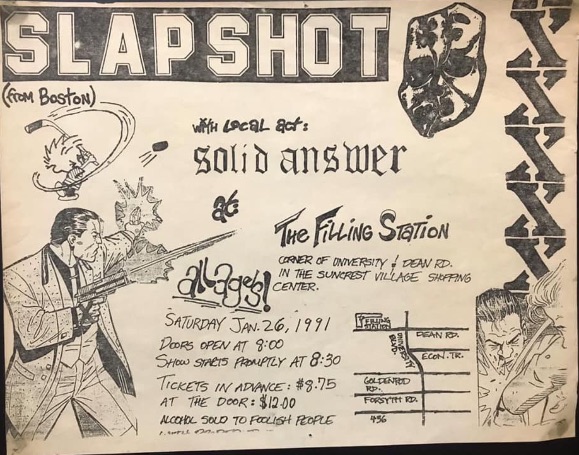 SLAPSHOT
(from BOSTON)
with LOCAL act:
solid answer
at:
The Filling Station
CORNER OF UNIVERSITY & DEAN RD.
IN THE SUNCREST VILLAGE SHOPPING
CENTER.
all ages!
SATURDAY JAN. 26, 1991
DOORS OPEN AT 8:00
SHOW STARTS PROMPTLY AT 8:30
TICKETS IN ADVANCE: $8.75
AT THE DOOR: $12.00
ALCOHOL SOLD TO FOOLISH PEOPLE
FILLING
STATION
DEAN RD.
UNIVERSITY BLVD
ECON. TR.
GOLDENROD
RD.
FORSYTH RD.
436